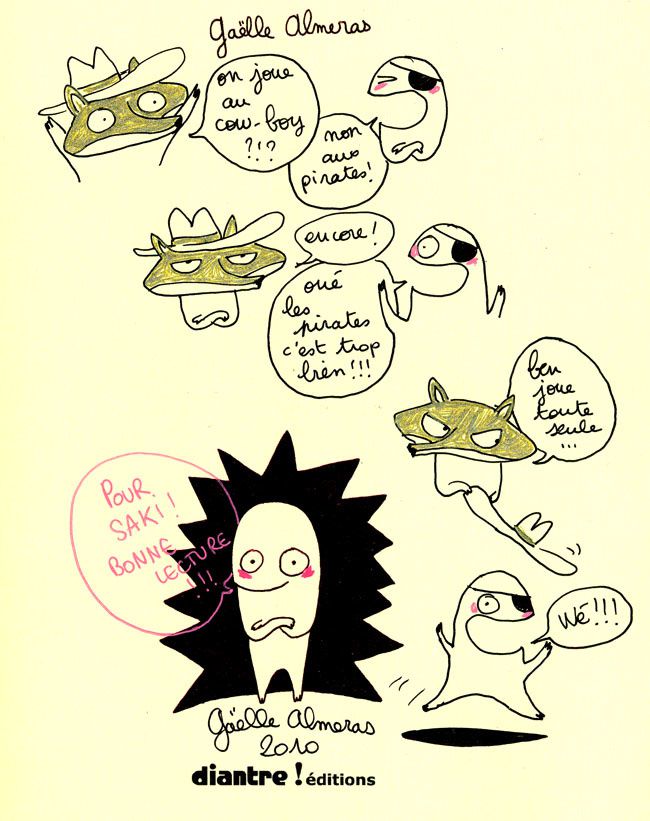 Gaëlle Almeras
on joue
au
cow-boy
?!?
non
aux
pirates!
encore!
oué
les
pirates
c'est trop
bien!!!
ben
joue
toute
seule
...
POUR
SAKI!
BONNE
LECTURE
!!!
Wé!!!
Gaëlle Almeras
2010
diantre! éditions